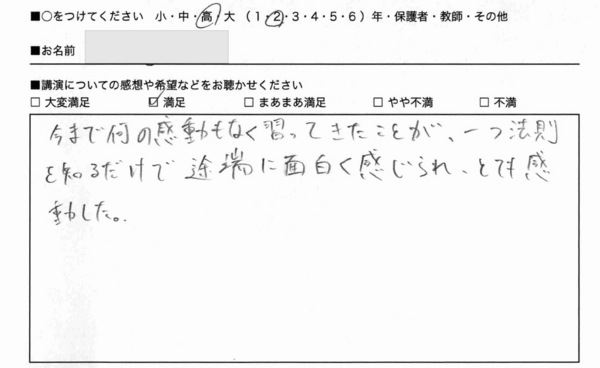 ■○をつけてください 小・中・高・大（1・2・3・4・5・6）年・保護者・教師・その他
■お名前
■講演についての感想や希望などをお聴かせください
□ 大変満足 ☑ 満足 □ まあまあ満足 □ やや不満 □ 不満
今まで何の感動もなく習ってきたことが、一つ法則
を知るだけで途端に面白く感じられ、とても感
動した。